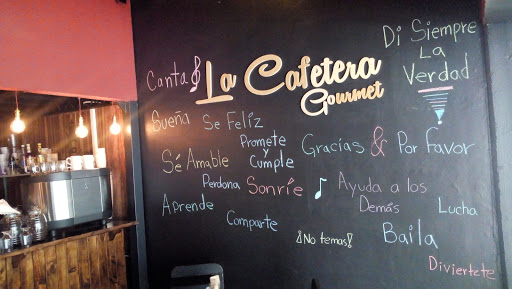 Canta
La Cafetera
Gourmet
Di Siempre
La
Verdad
Sueña
Se Felíz
Promete
y
Cumple
Gracias & Por Favor
Sé Amable
Perdona
Sonríe
Ayuda a los
Demás
Lucha
Aprende
Comparte
¡No temas!
Baila
Diviertete